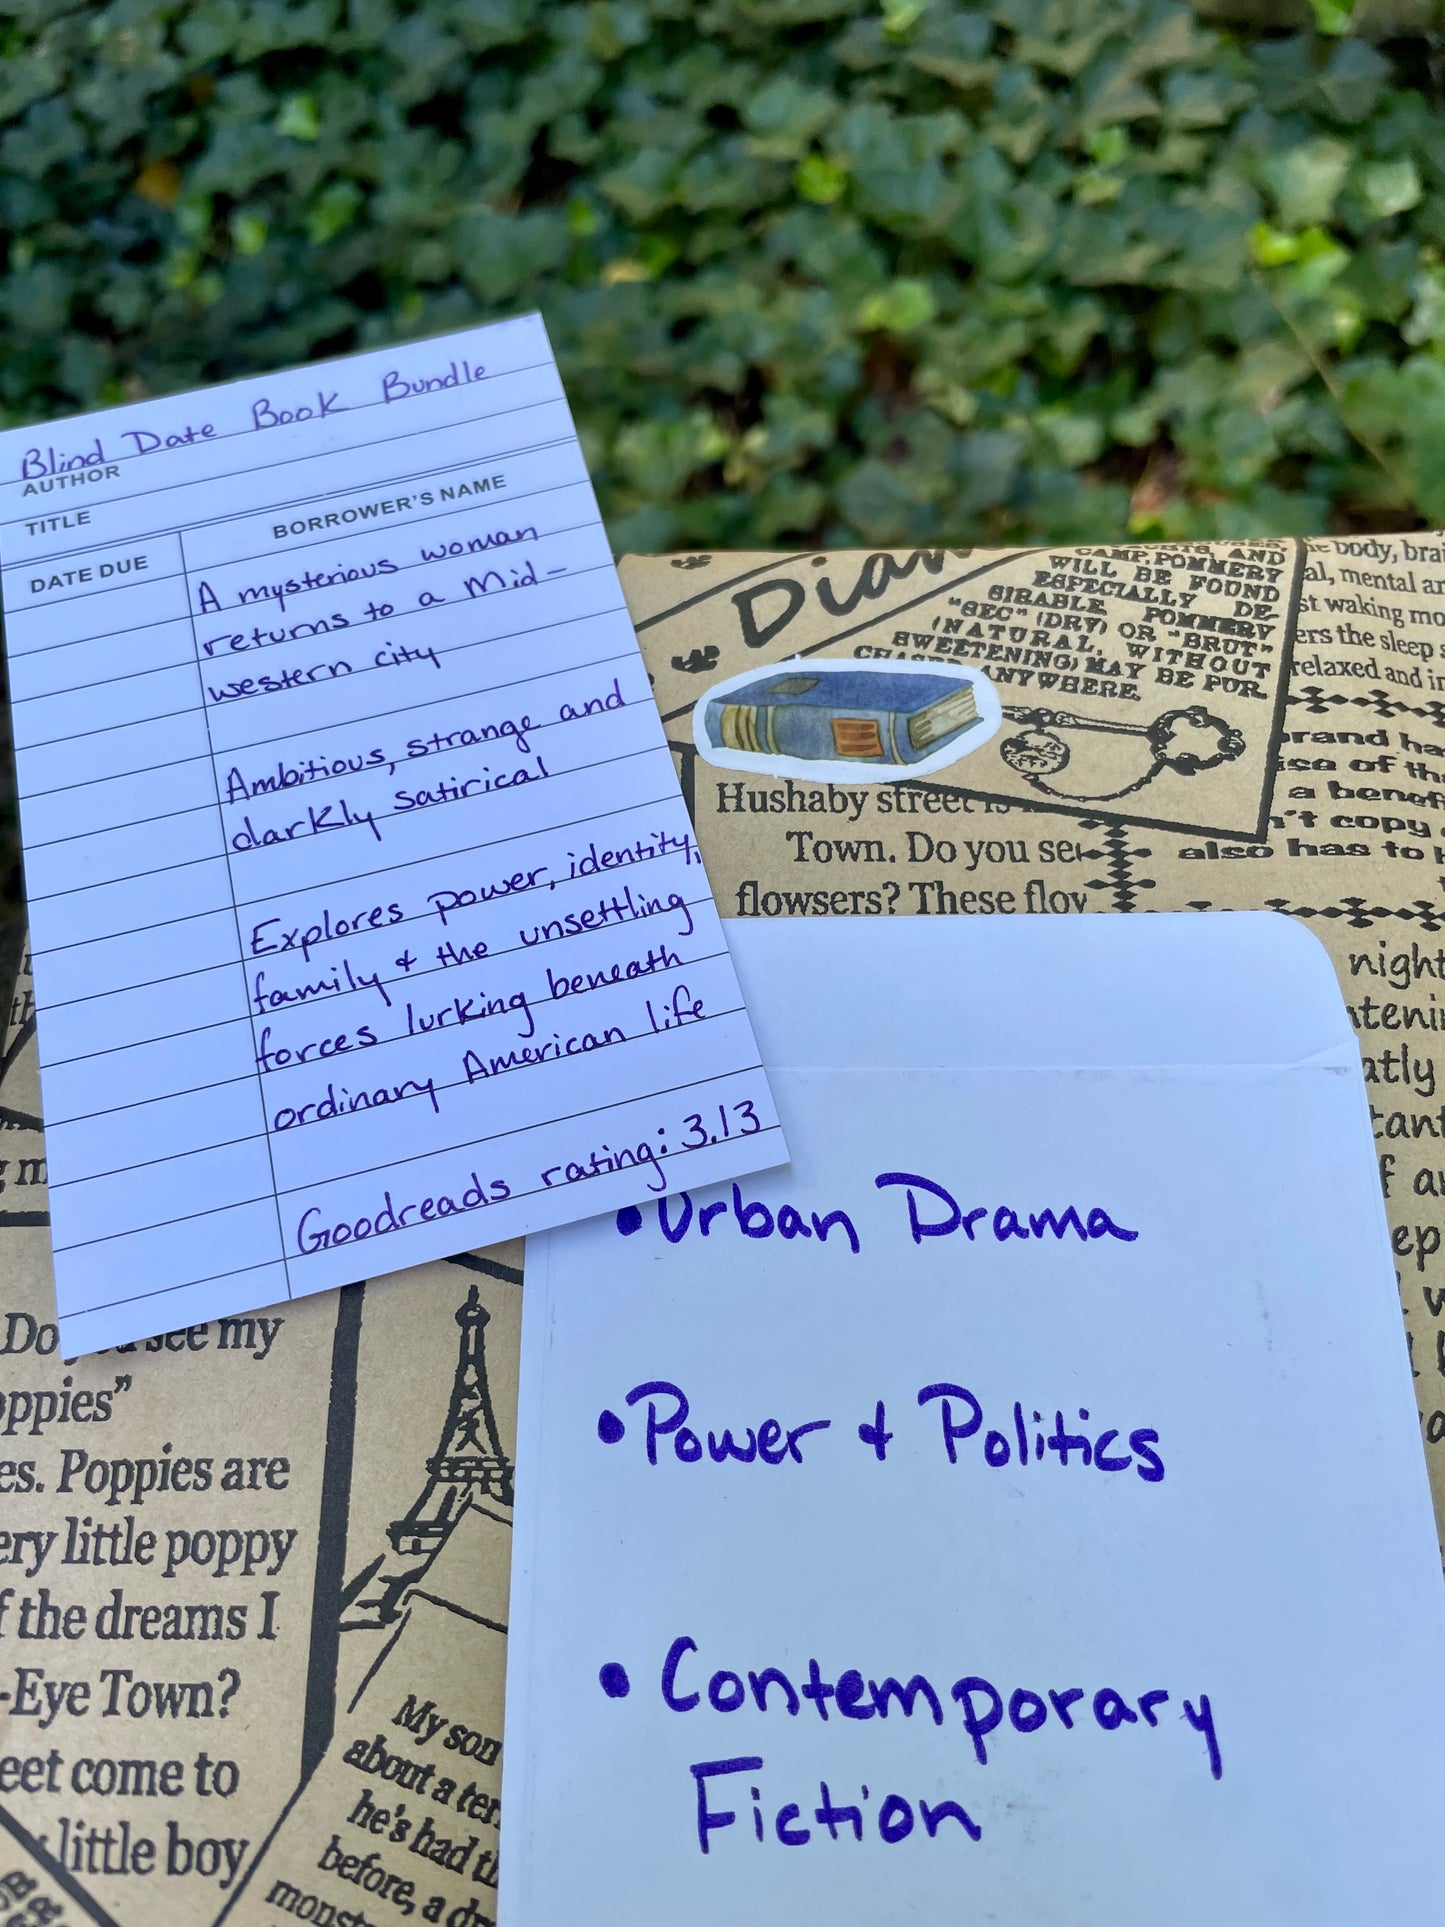 Blind Date Book Bundle
AUTHOR
TITLE
DATE DUE
BORROWER'S NAME
A mysterious woman
returns to a Mid-
western city
Ambitious, strange and
darkly satirical
Explores power, identity,
family & the unsettling
forces lurking beneath
ordinary American life
Goodreads rating: 3.13
CAMP, POMMERY
WILL BE FOUND
ESPECIALLY DE-
SIRABLE POMMERY
"SEC" (DRY) OR "BRUT"
(NATURAL, WITHOUT
SWEETENING) MAY BE PUR
ANYWHERE
body,
al, mental
st waking
ers the sleep
relaxed and
of
a
n't copy
also has to
Hushaby street is
Town. Do you
flowsers? These
night
• Urban Drama
• Power & Politics
• Contemporary
Fiction
Do you see my
oppies"
es. Poppies are
ery little poppy
f the dreams I
-Eye Town?
eet come to
little boy
My son
about a
he's had
before, a